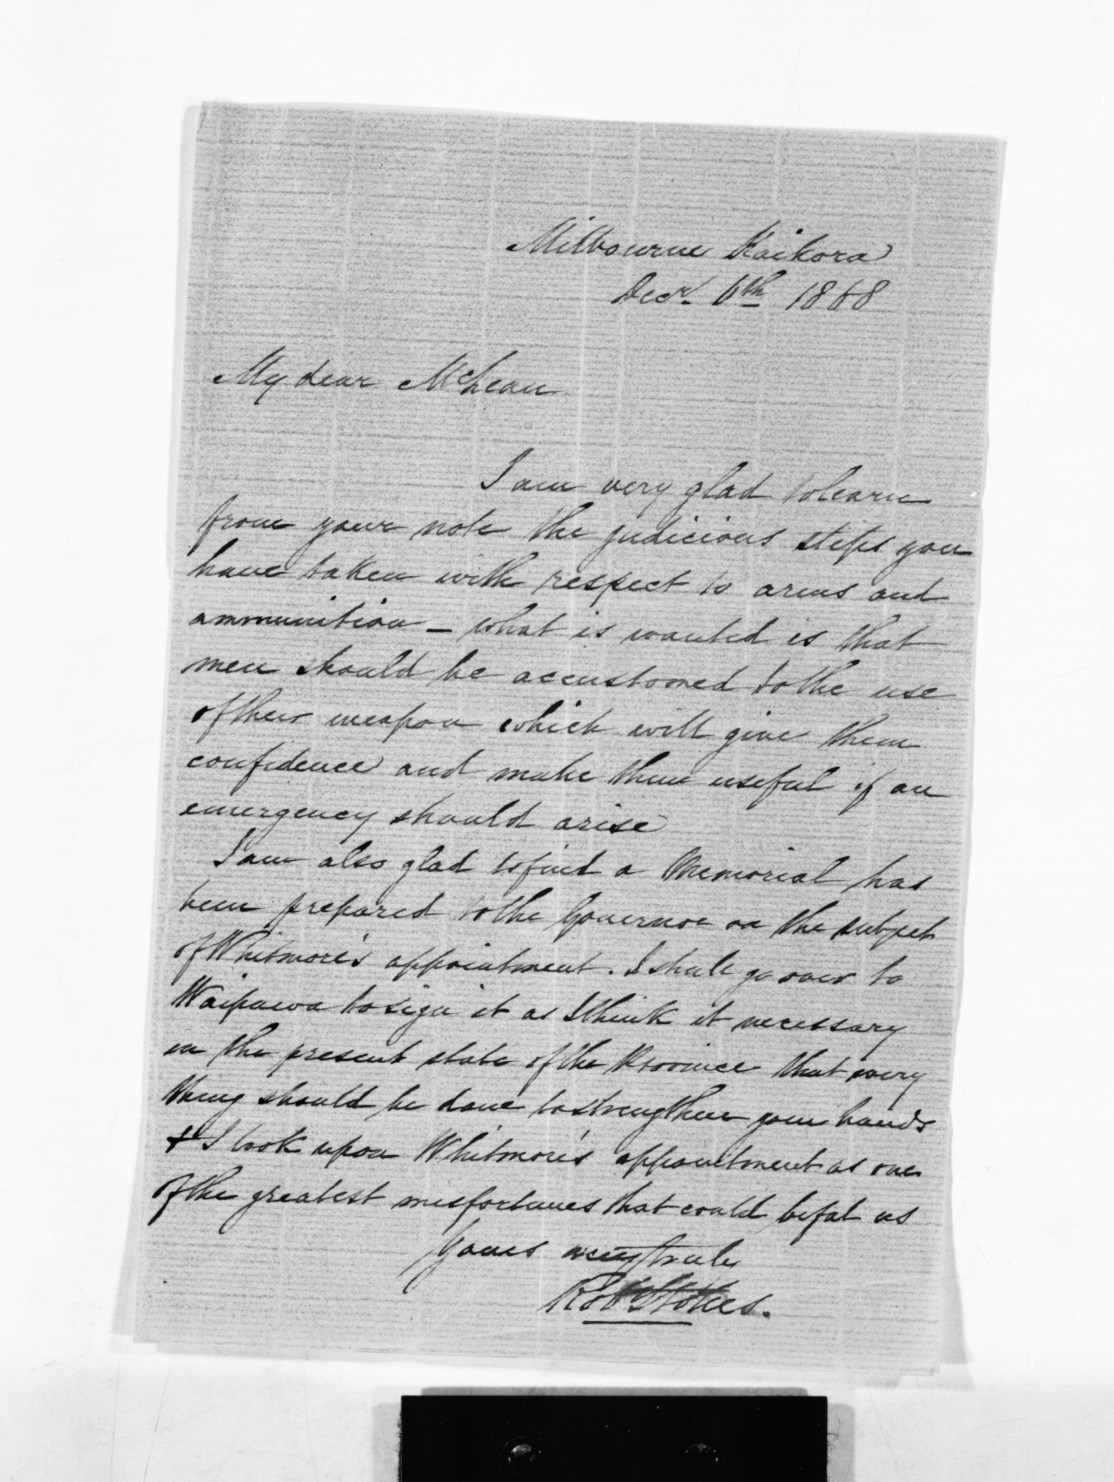 Milbourne Kaikora
Decr. 6th 1868
My dear McLean
I am very glad to learn
from your note the judicious steps you
have taken with respect to arms and
ammunition - what is wanted is that
men should be accustomed to the use
of their weapon which will give them
confidence and make them useful if an
emergency should arise
I am also glad to find a Memorial has
been prepared to the Governor on the subject
of Whitmore's appointment. I shall go over to
Waipawa to sign it as I think it necessary
in the present state of the Province that every
thing should be done to strengthen your hands
& I look upon Whitmore's appointment as one
of the greatest misfortunes that could befal us
Yours very truly
Robt Stokes.